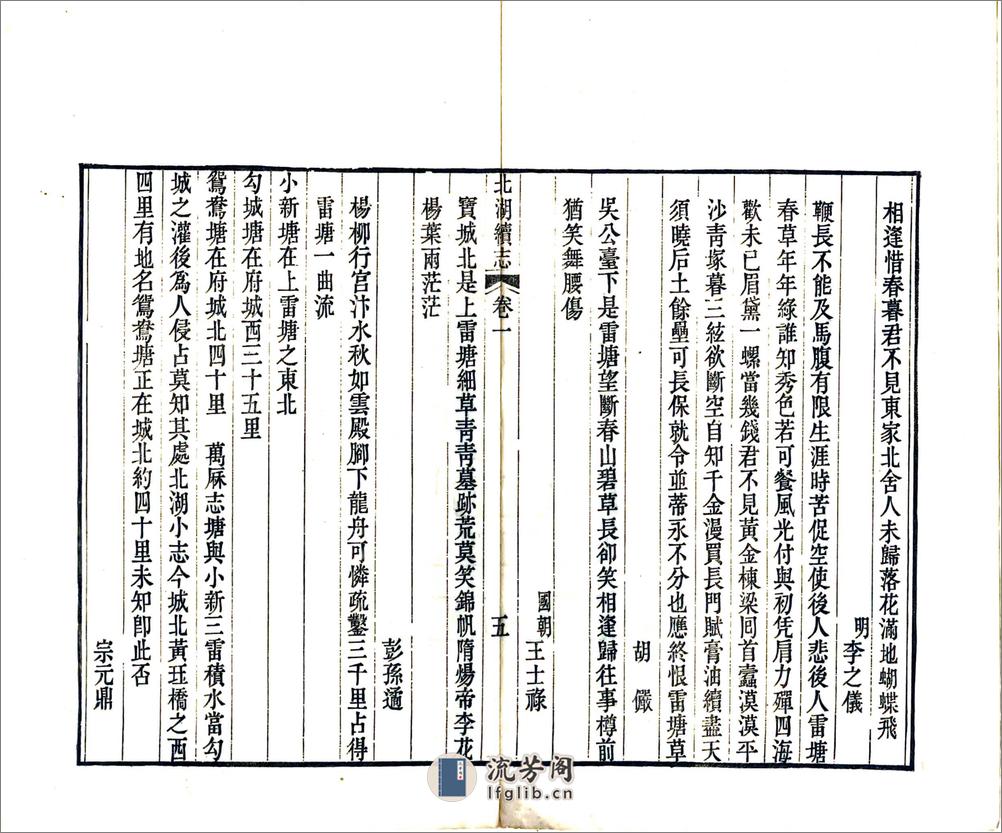 相逢惜春暮君不見東家北舍人未歸落花滿地蝴蝶飛
明李之儀
鞭長不能及馬腹有限生涯時苦促空使後人悲後人雷塘
春草年年綠誰知秀色若可餐風光付與初凭肩力殫四海
歡未已眉黛一螺當幾錢君不見黃金棟梁同首蠹漠漠平
沙青塚暮三絃欲斷空自知千金漫買長門賦膏油續盡天
須曉后土餘壘可長保就令並蒂永不分也應終恨雷塘草
胡儼
吳公臺下是雷塘望斷春山碧草長卻笑相逢歸往事樽前
猶笑舞腰傷
國朝王士祿
北湖續志 卷一 五
寶城北是上雷塘細草青青墓跡荒莫笑錦帆隋煬帝李花
楊葉雨茫茫
彭孫遹
楊柳行宮汴水秋如雲殿腳下龍舟可憐疏鑿三千里占得
雷塘一曲流
小新塘在上雷塘之東北
勾城塘在府城西三十五里
鴛鴦塘在府城北四十里 萬厤志塘與小新三雷積水當勾
城之灌後爲人侵占莫知其處北湖小志今城北黃珏橋之西
四里有地名鴛鴦塘正在城北約四十里未知卽此否
宗元鼎
流芳阁
lfglib.cn